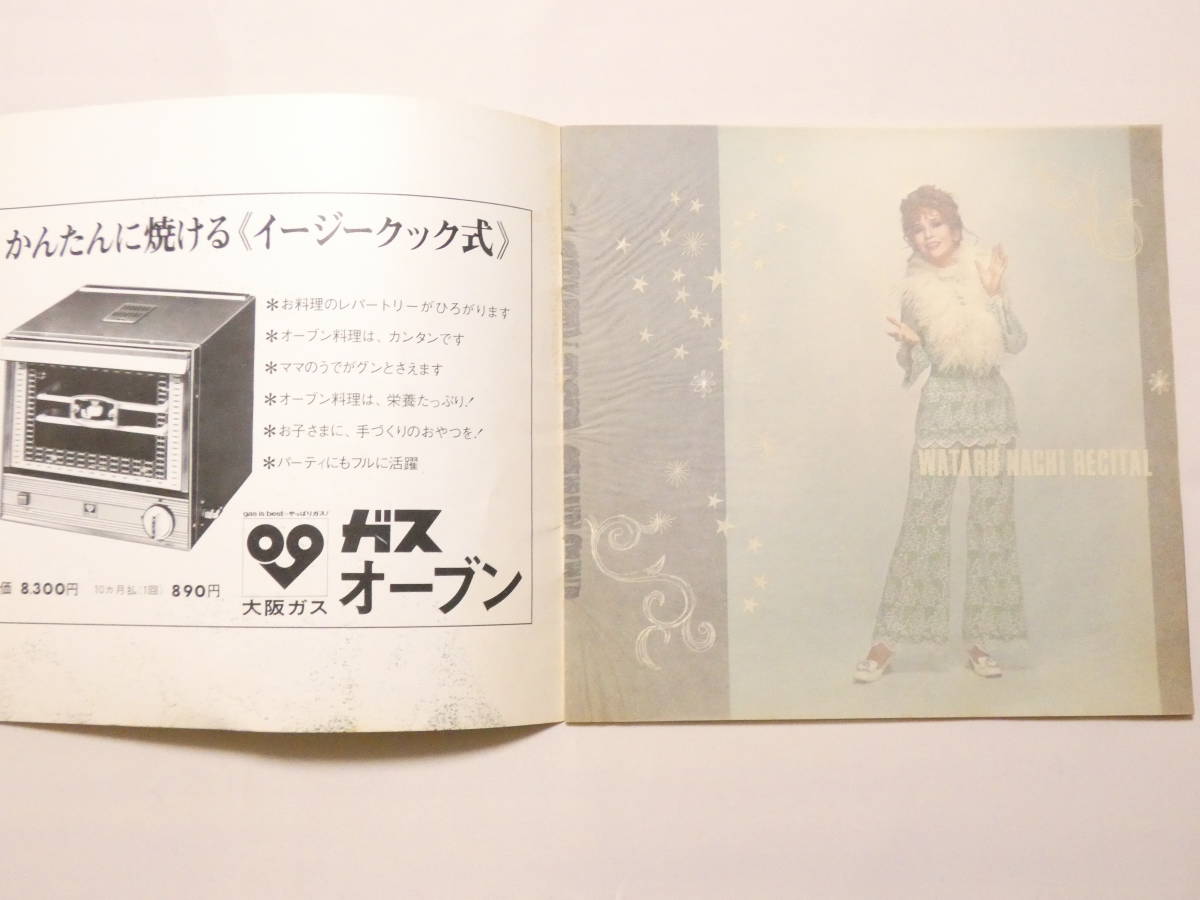 かんたんに焼ける《イージークック式》
＊お料理のレパートリーがひろがります
＊オーブン料理は、カンタンです
＊ママのうでがグンとさえます
＊オーブン料理は、栄養たっぷり！
＊お子さまに、手づくりのおやつを！
＊パーティにもフルに活躍
gas is best…やっぱりガス！
大阪ガス
ガス
オーブン
価 8.300円 10カ月払(1回) 890円
WATARU NACHI RECITAL